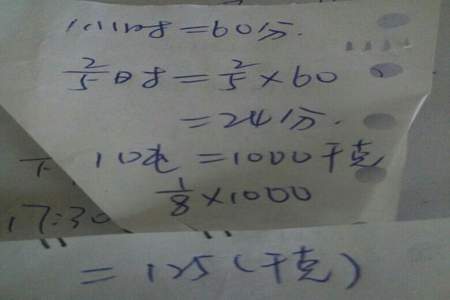 1小时=60分.
2/5时=2/5×60
=24分.
1吨=1000千克
1/8×1000
17:30
=125(千克)